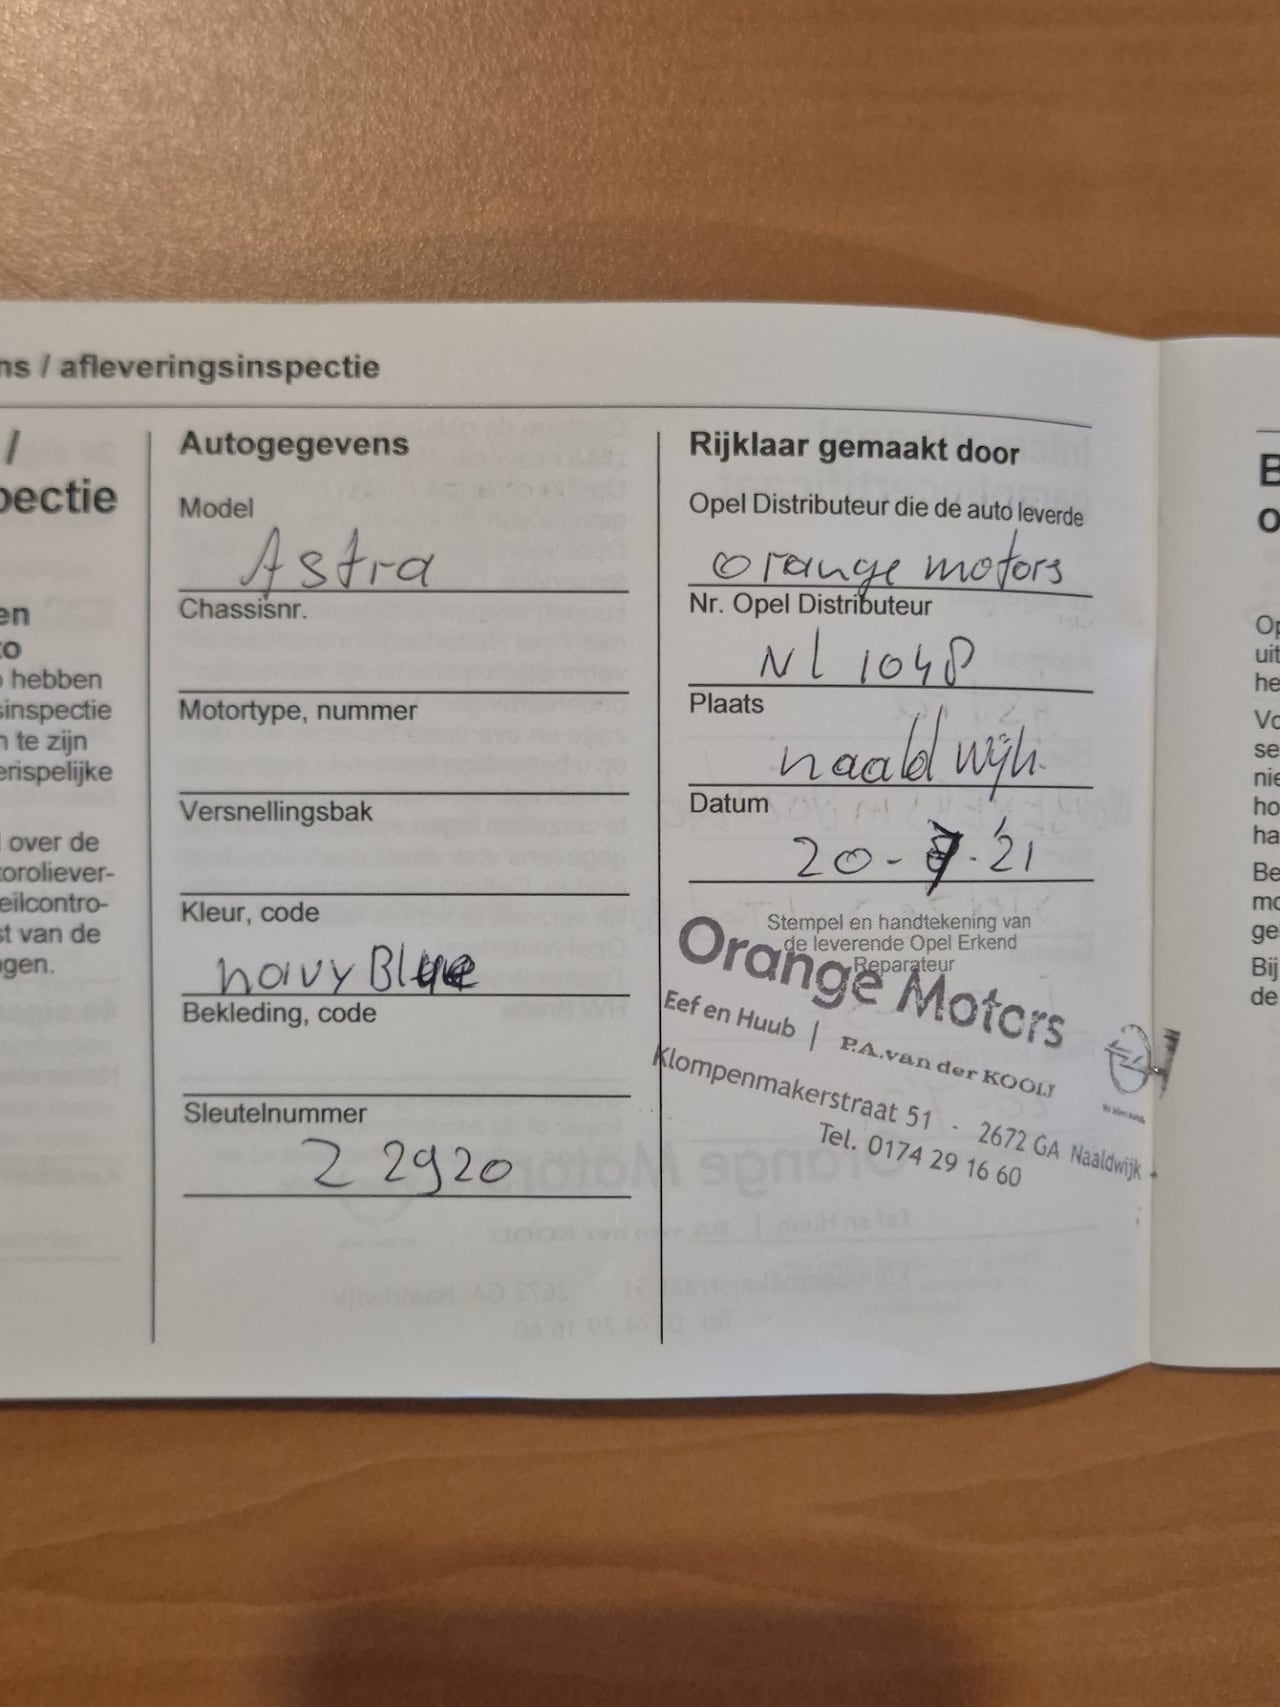 ns / afleveringsinspectie
/
pectie
en
to
hebben
sinspectie
n te zijn
erispelijke
l over de
toroliever-
eilcontro-
st van de
ngen.
Autogegevens
Model
Astra
Chassisnr.
Motortype, nummer
Versnellingsbak
Kleur, code
navy Blue
Bekleding, code
Sleutelnummer
Z 2920
Rijklaar gemaakt door
Opel Distributeur die de auto leverde
orange motors
Nr. Opel Distributeur
NL 1048
Plaats
naaldwijk.
Datum
20-7-'21
Stempel en handtekening van
de leverende Opel Erkend
Reparateur
Orange Motors
Eef en Huub | P.A. van der KOOIJ
Klompenmakerstraat 51 - 2672 GA Naaldwijk
Tel. 0174 29 16 60
B
o
Op
uit
he
Vo
se
nie
ho
ha
Be
mo
ge
Bij
de